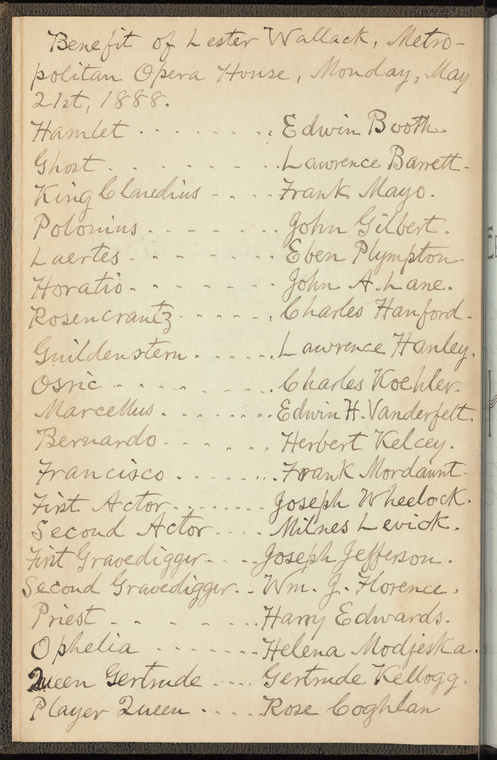 Benefit of Lester Wallack, Metro-
politan Opera House, Monday, May
21st, 1888.
Hamlet - - - - - - . Edwin Booth.
Ghost. - - - - - - . Lawrence Barrett.
King Claudius - - - - Frank Mayo.
Polonius - - - - - - - John Gilbert.
Laertes - - - - - - - Eben Plympton.
Horatio - - - - - - - John A. Lane.
Rosencrantz - - - - - . Charles Hanford.
Guildenstern - - - - - - Lawrence Hanley.
Osric - - - - - - - Charles Koehler.
Marcellus - - - - - - - Edwin H. Vanderfelt.
Bernardo - - - - - - Herbert Kelcey.
Francisco - - - - - - - Frank Mordaunt.
First Actor - - - - - - Joseph Wheelock.
Second Actor - - - - Milnes Levick.
First Gravedigger - - - Joseph Jefferson.
Second Gravedigger - - Wm. J. Florence.
Priest - - - - - - - Harry Edwards.
Ophelia - - - - - - - Helena Modjeska.
Queen Gertrude - - - - Gertrude Kellogg.
Player Queen - - - - Rose Coghlan